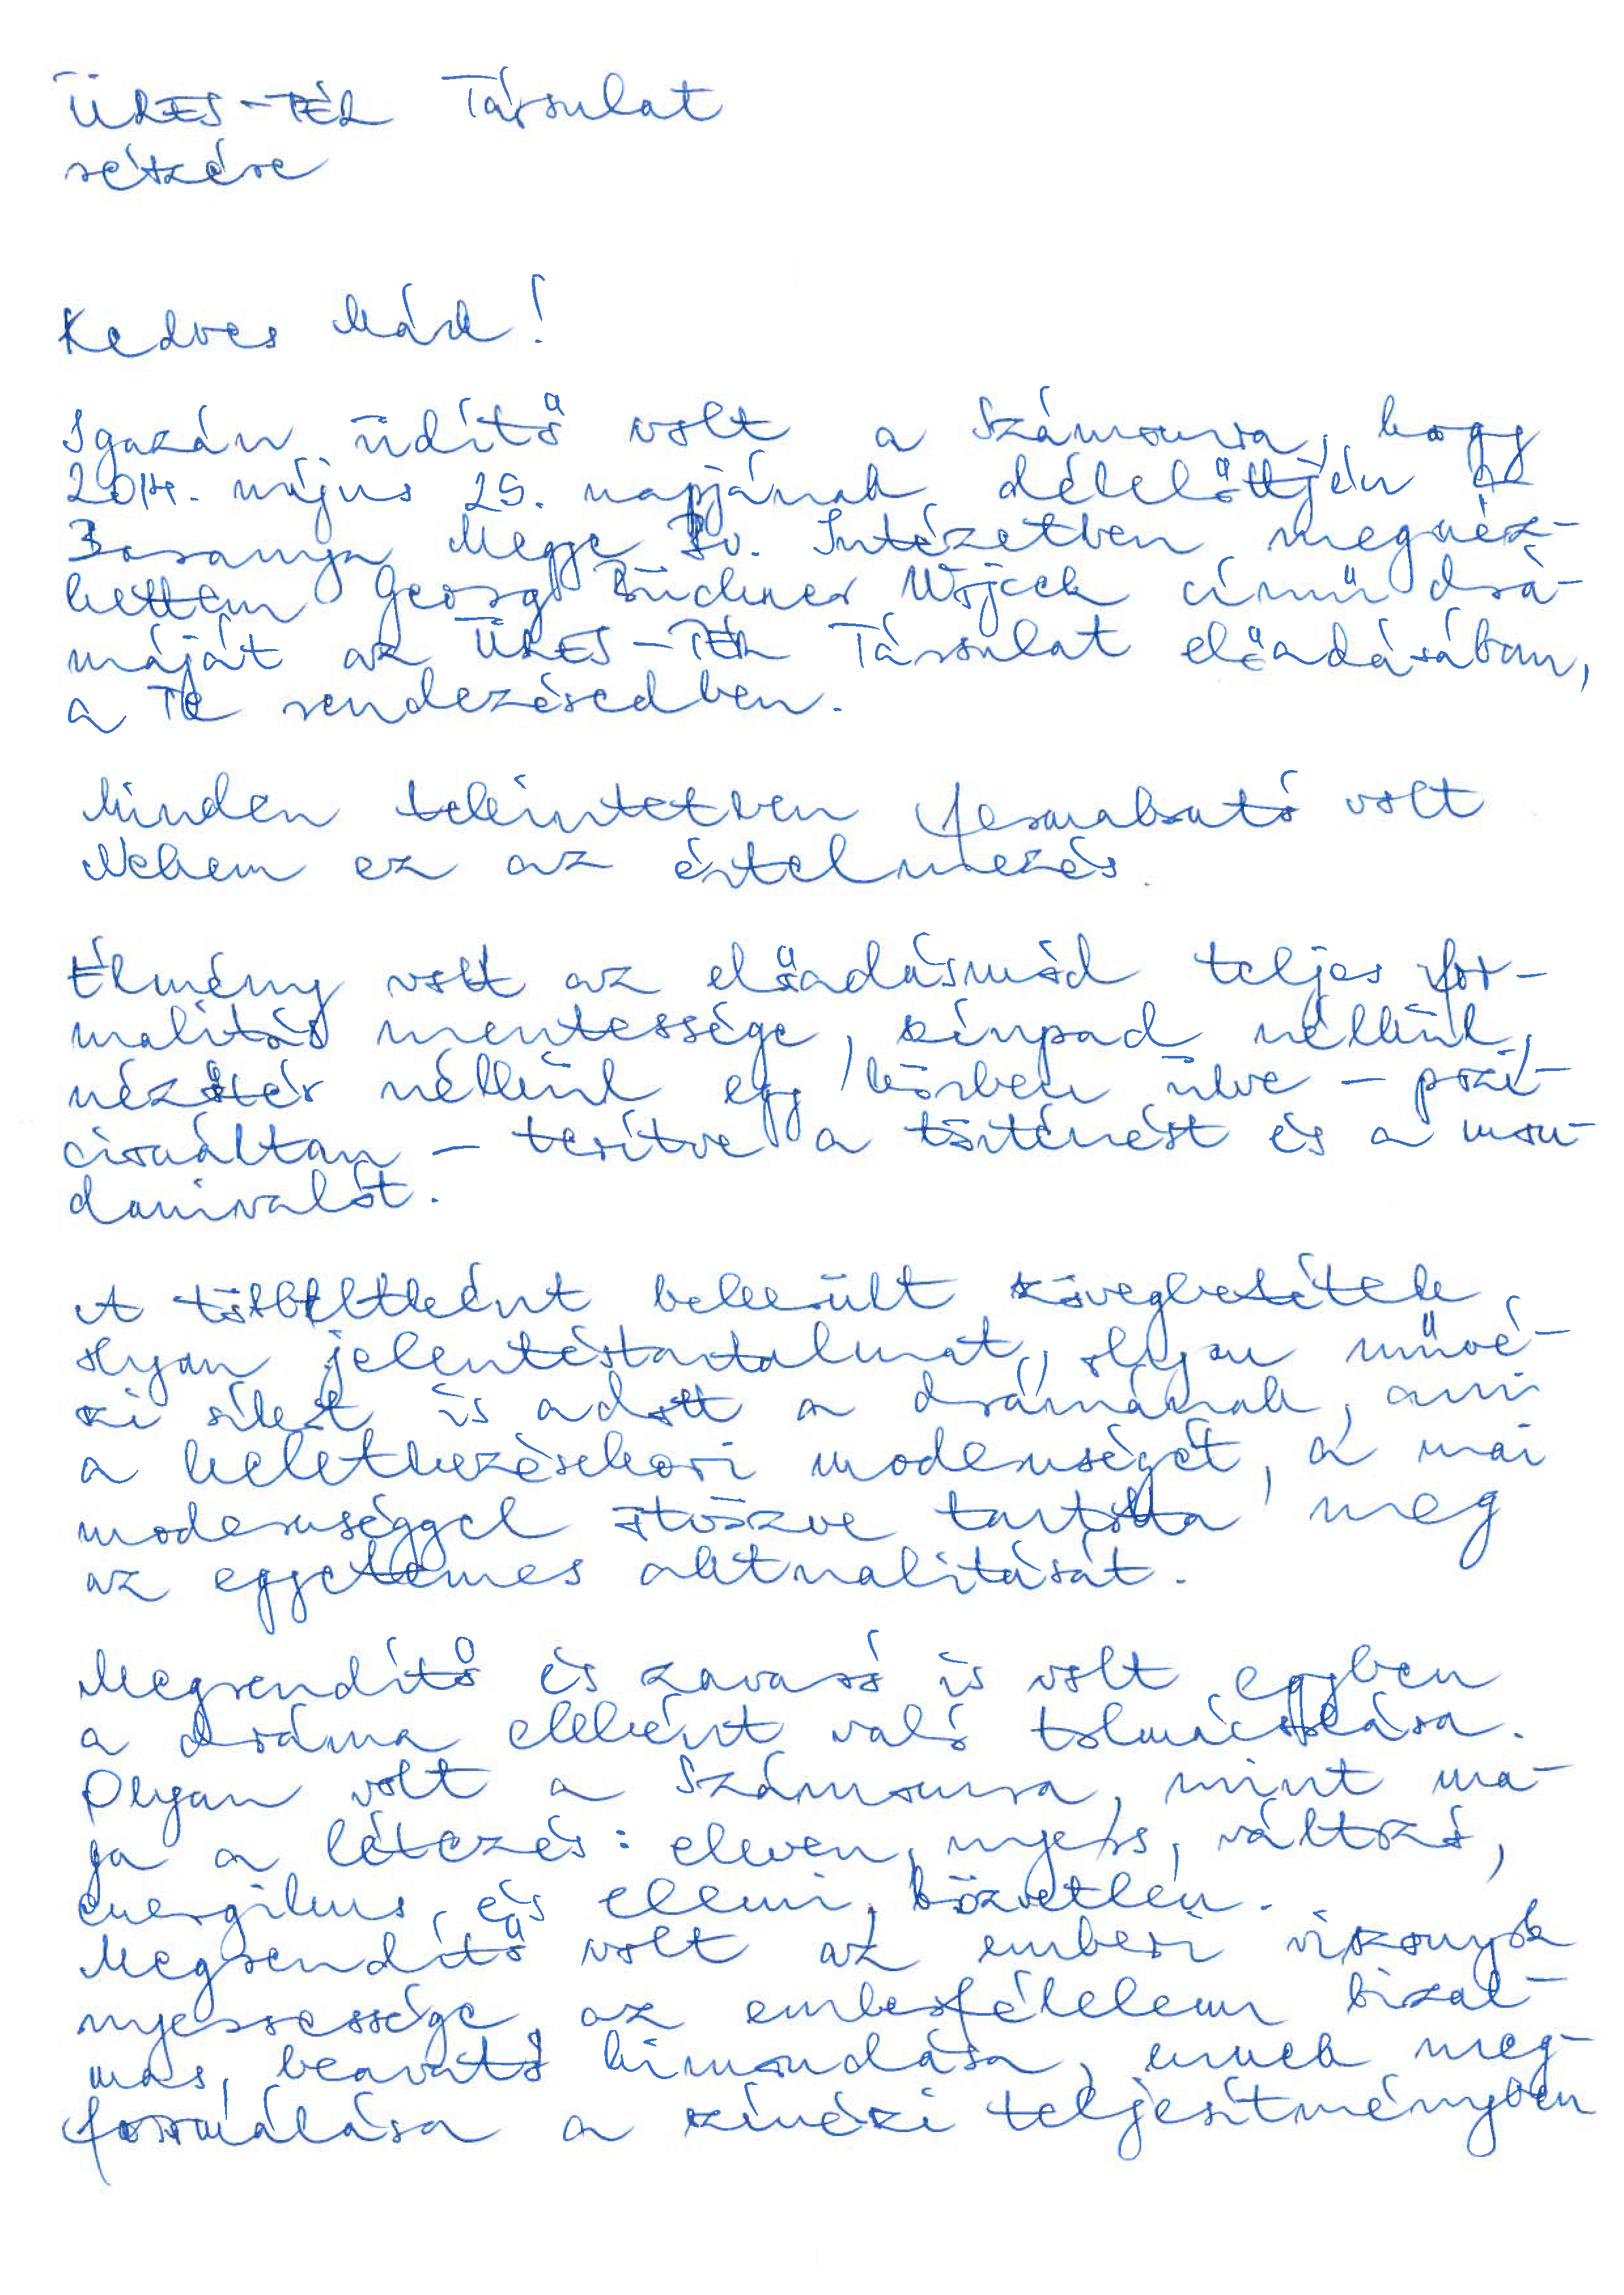 ÜRES-TÉR Társulat
részére
Kedves Márk!
Igazán üdítő volt a Számomra, hogy
2014. május 25. napjának délelőttjén a
Baranya Megye Bv. Intézetben megnéz-
hettem Georg Büchner Wojcek című drá-
máját az ÜRES-TÉR Társulat előadásában,
a Te rendezésedben.
Minden tekintetben formabontó volt
Nekem ez az értelmezés.
Élmény volt az előadásmód teljes for-
malitás mentessége, színpad nélkül,
nézőtér nélkül egy körben ülve – pozi-
cionáltan – terítve a történést és a mon-
danivalót.
A többletként bekerült szövegbetétek
olyan jelentéstartalmat, olyan művé-
szi ízt is adott a drámának, ami
a keletkezéskori modernségét, a mai
modernséggel ötvözve tartotta meg
az egyetemes aktualitását.
Megrendítő és zavaró is volt egyben
a dráma ekként való tolmácsolása.
Olyan volt a Számomra, mint ma-
ga a létezés: eleven, nyers, változó,
energikus és elemi, közvetlen.
Megrendítő volt az emberi viszonyok
nyersessége, az emberfélelem bizal-
mas, beavató kimondása, ennek meg-
formálása a színészi teljesítményben